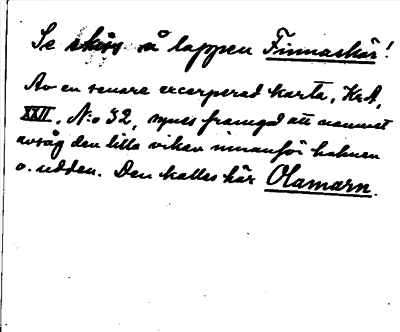 Se skiss å lappen Finnaskär!
Av en senare excerperad karta, KrA,
XXII, No 32, synes framgå att namnet
avsåg den lilla viken innanför holmen
o. udden. Den kallas här Olamarn.